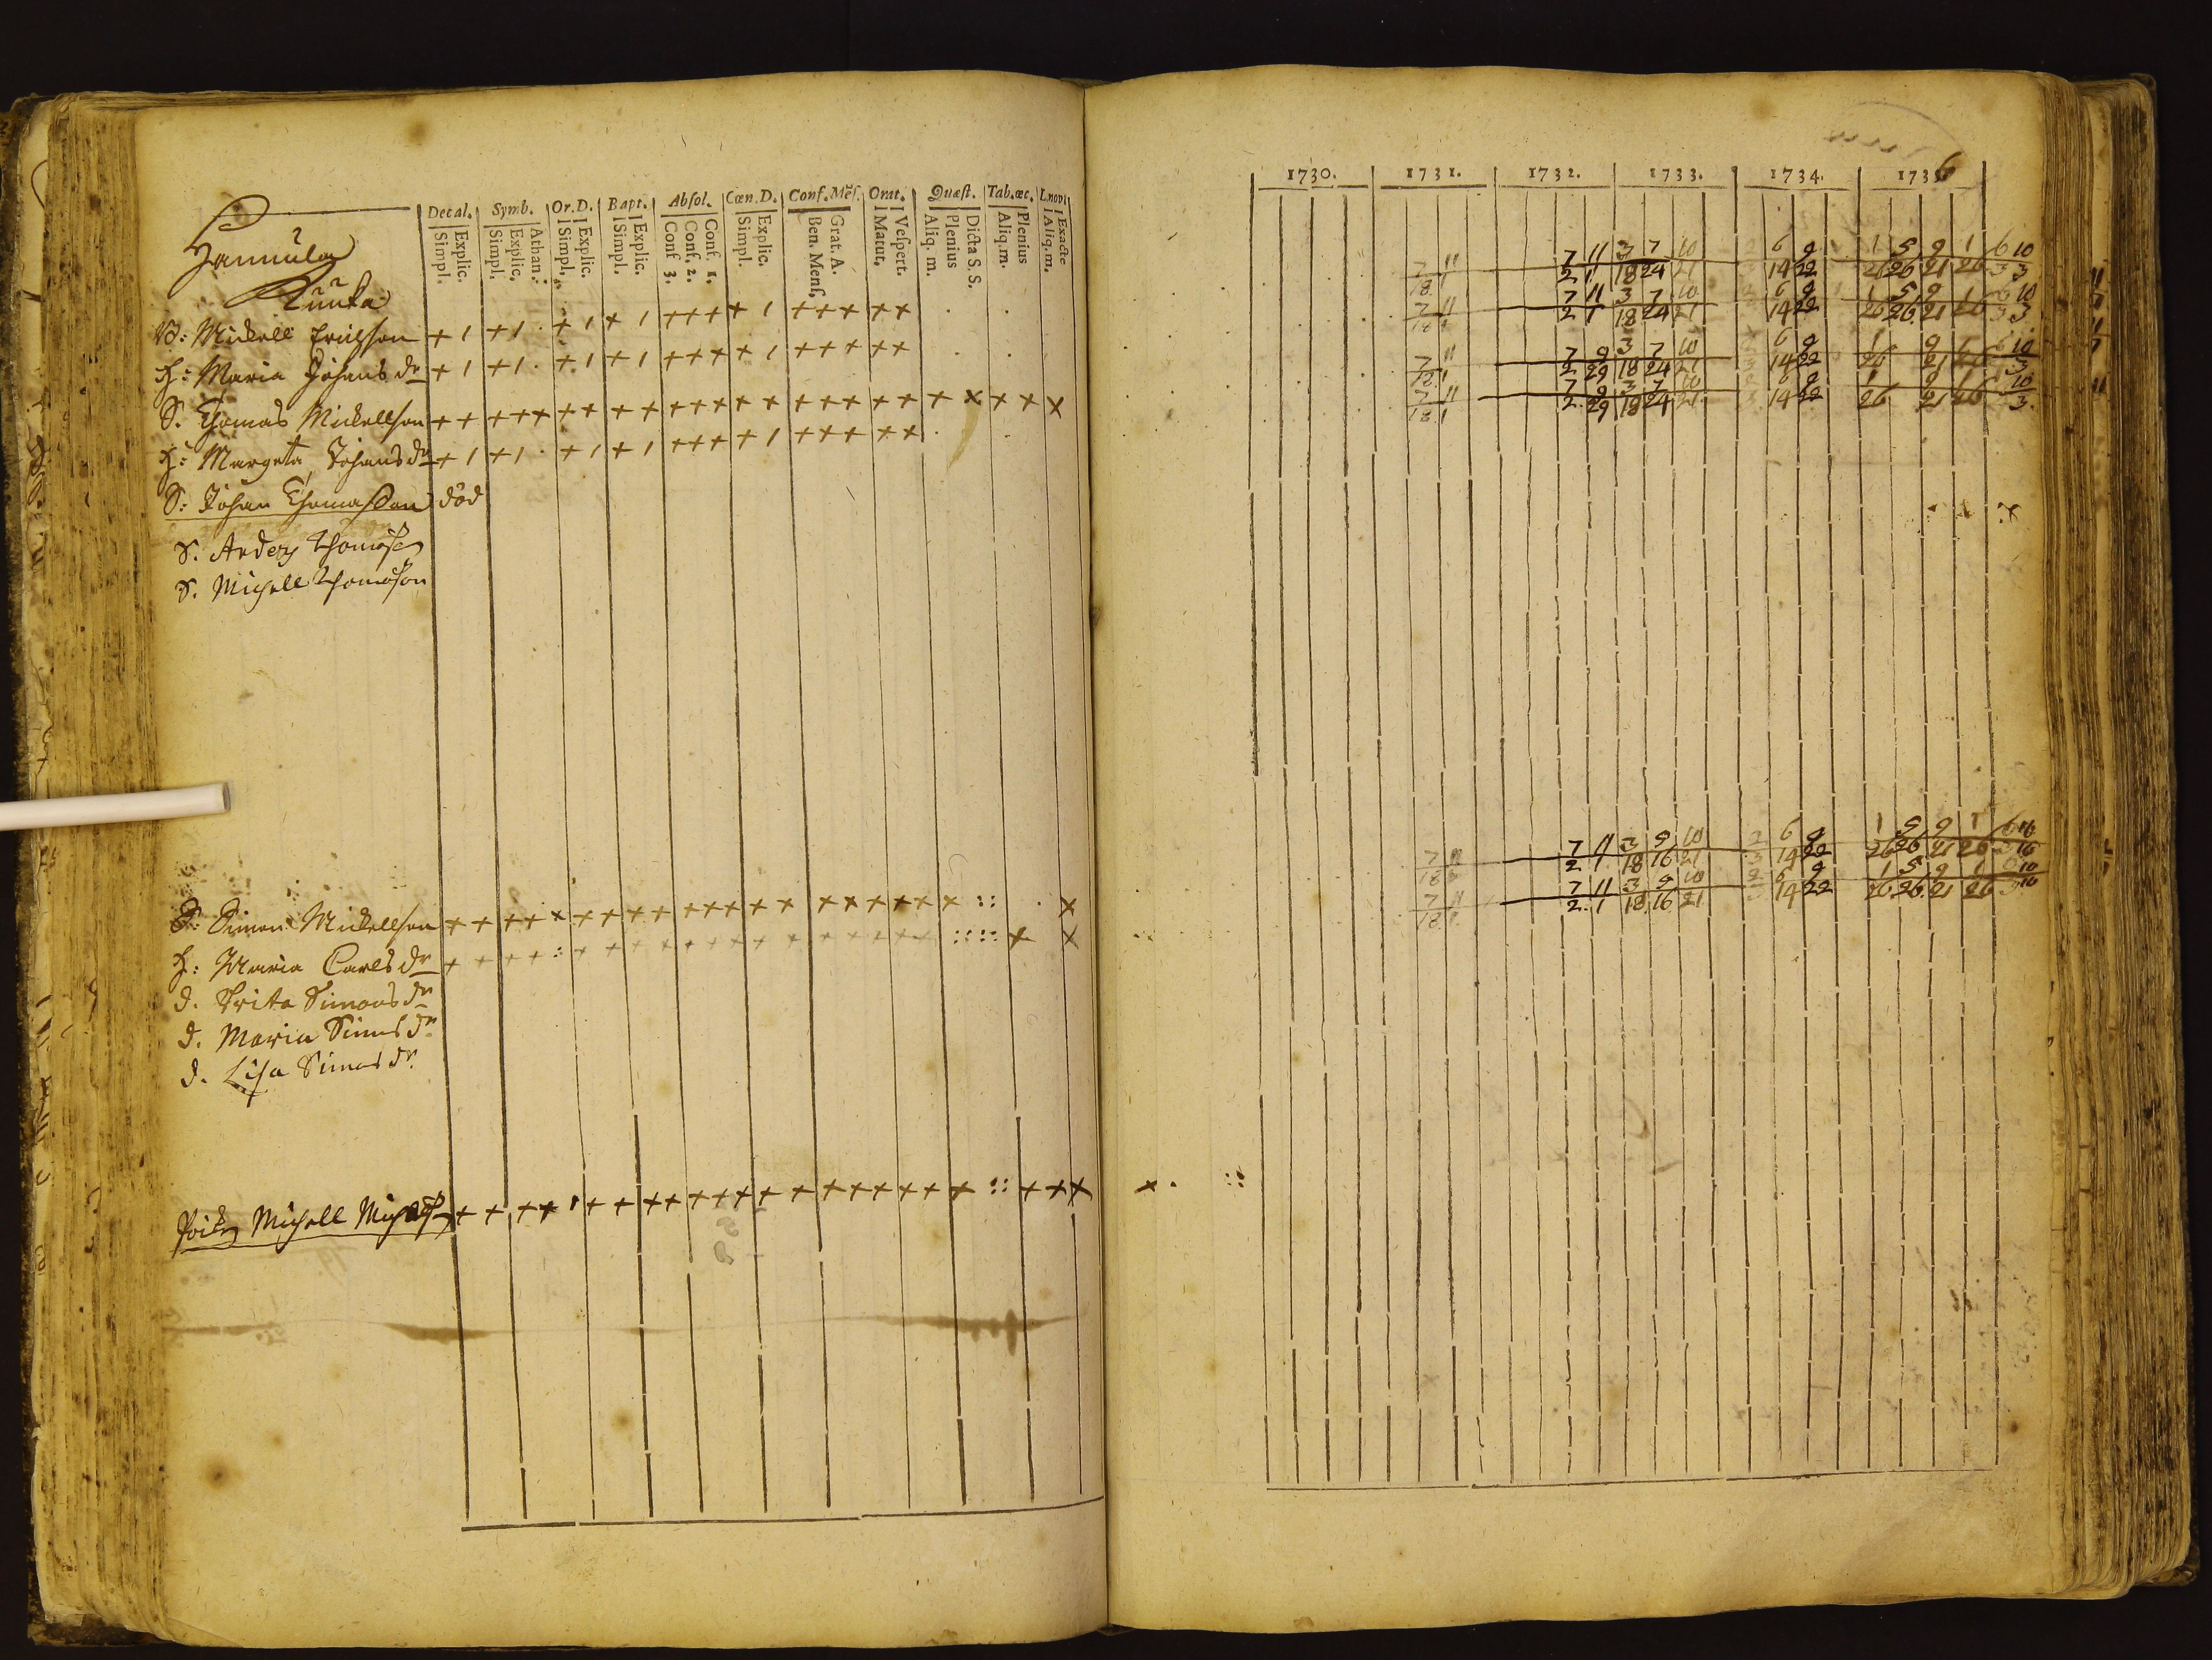 Hannula
Kuuka
Decal. Symb. Or.D. Bapt. Absol. Cœn.D. Conf.Mēs. Orat. Quæst. Tab.œc. L.novi
Simpl. Explic. Simpl. Explic. Athan. Simpl. Explic. Simpl. Explic. Conf 3. Conf. 2. Conf. 1. Simpl. Explic. Ben. Mens. Grat. A. Matut. Vespert. Aliq. m. Plenius Dicta S. S. Aliq. m. Plenius Aliq. m. Exacte
Mickell Erichson
H: Maria Johans dr
S. Thomas Mickellson
H: Margeta Johans dr
S: Johan Thomasson död
S. Anders Thomasson
S. Michell Thomasson
S: Simon Mickellson
H: Maria Carls dr
d. Brita Simons dr
d. Maria Simos dr
d. Lisa Simos dr
Michell
1730. 1731. 1732. 1733. 1734. 1736
7 11 7 11 3 7 10 6 9 1 5 9 1 6 10
18 1 2 1 18 24 21 14 22 26 26 21 26 3 3
7 11 7 11 3 7 10 6 9 1 5 9 1 6 10
18 1 2 1 18 24 21 14 22 26 26 21 26 3 3
7 11 7 9 3 7 10 6 9 1 9 1 6 10
18 1 2 29 18 24 21 3 14 22 26 21 26 3
7 11 7 9 3 7 10 6 9 1 9 1 10
18 1 2 29 18 24 21 14 22 26 21 26 3
7 11 7 11 3 9 10 2 6 9 1 5 9 1 6 10
18 2 1 18 16 21 3 14 22 26 26 21 26
7 11 7 11 3 9 10 2 6 9 1 5 9 1 10
18 2 1 18 16 21 14 22 26 26 21 26